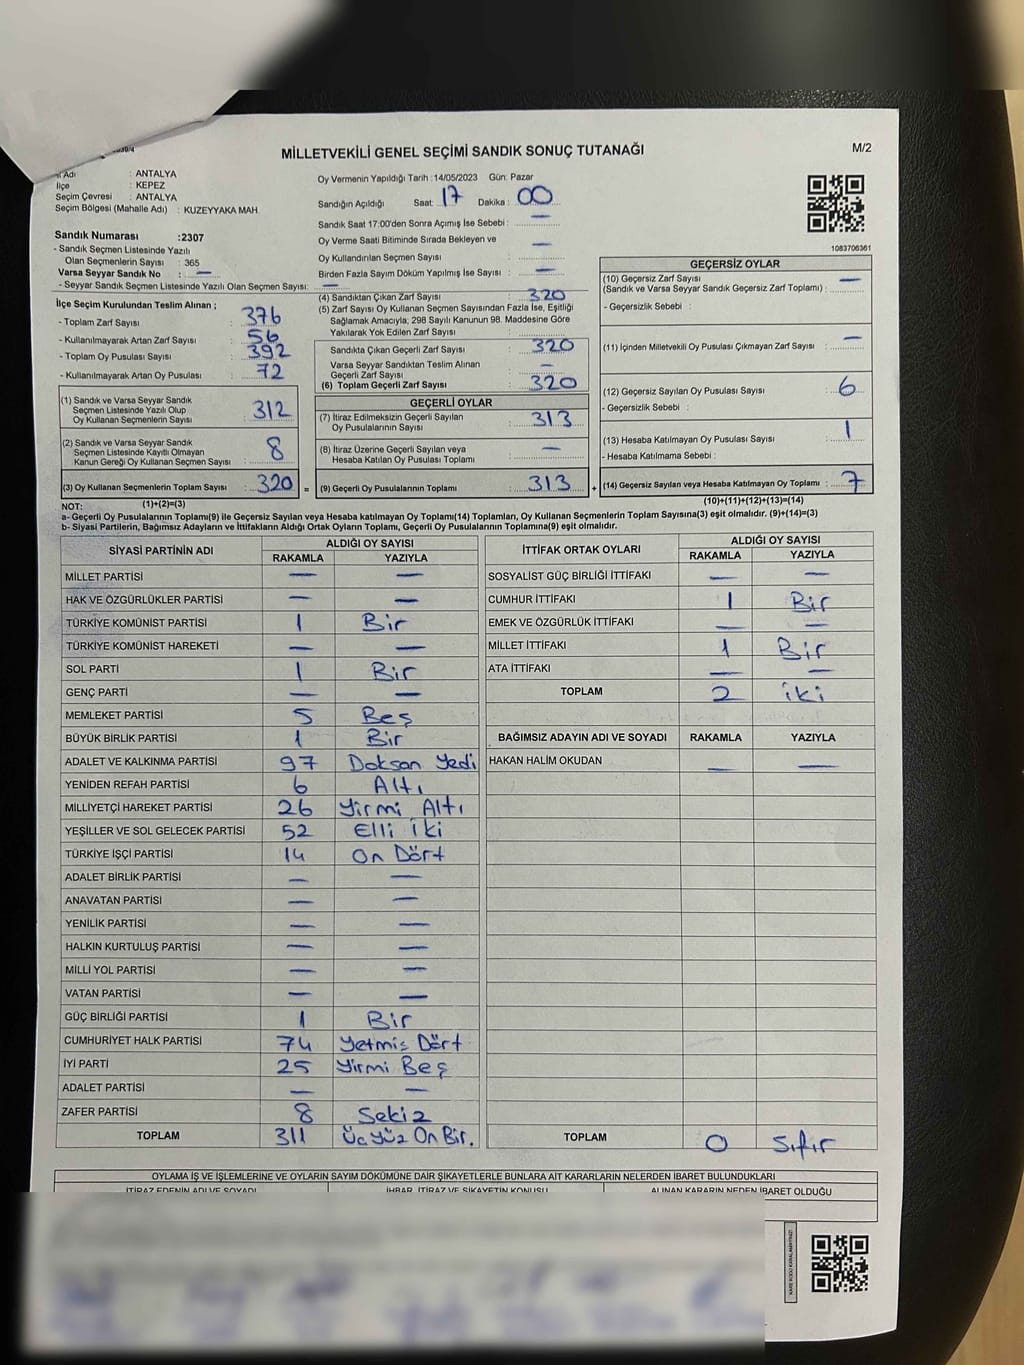 MİLLETVEKİLİ GENEL SEÇİMİ SANDIK SONUÇ TUTANAĞI
M/2
Adı : ANTALYA
İlçe : KEPEZ
Seçim Çevresi : ANTALYA
Seçim Bölgesi (Mahalle Adı) : KUZEYYAKA MAH.
Sandık Numarası :2307
- Sandık Seçmen Listesinde Yazılı
Olan Seçmenlerin Sayısı : 365
Varsa Seyyar Sandık No : —
- Seyyar Sandık Seçmen Listesinde Yazılı Olan Seçmen Sayısı: —
Oy Vermenin Yapıldığı Tarih :14/05/2023 Gün: Pazar
Sandığın Açıldığı Saat: 17 Dakika : 00
Sandık Saat 17:00'den Sonra Açımış İse Sebebi : —
Oy Verme Saati Bitiminde Sırada Bekleyen ve
Oy Kullandırılan Seçmen Sayısı : —
Birden Fazla Sayım Döküm Yapılmış İse Sayısı : —
1083706361
İlçe Seçim Kurulundan Teslim Alınan ;
- Toplam Zarf Sayısı : 376
- Kullanılmayarak Artan Zarf Sayısı : 56
- Toplam Oy Pusulası Sayısı : 392
- Kullanılmayarak Artan Oy Pusulası : 72
(1) Sandık ve Varsa Seyyar Sandık
Seçmen Listesinde Yazılı Olup
Oy Kullanan Seçmenlerin Sayısı : 312
(2) Sandık ve Varsa Seyyar Sandık
Seçmen Listesinde Kayıtlı Olmayan
Kanun Gereği Oy Kullanan Seçmen Sayısı : 8
(3) Oy Kullanan Seçmenlerin Toplam Sayısı : 320 =
(1)+(2)=(3)
(4) Sandıktan Çıkan Zarf Sayısı : 320
(5) Zarf Sayısı Oy Kullanan Seçmen Sayısından Fazla İse, Eşitliği
Sağlamak Amacıyla, 298 Sayılı Kanunun 98. Maddesine Göre
Yakılarak Yok Edilen Zarf Sayısı :
Sandıkta Çıkan Geçerli Zarf Sayısı : 320
Varsa Seyyar Sandıktan Teslim Alınan
Geçerli Zarf Sayısı : —
(6) Toplam Geçerli Zarf Sayısı : 320
GEÇERLİ OYLAR
(7) İtiraz Edilmeksizin Geçerli Sayılan
Oy Pusulalarının Sayısı : 313
(8) İtiraz Üzerine Geçerli Sayılan veya
Hesaba Katılan Oy Pusulası Toplamı : —
(9) Geçerli Oy Pusulalarının Toplamı : 313 +
GEÇERSİZ OYLAR
(10) Geçersiz Zarf Sayısı
(Sandık ve Varsa Seyyar Sandık Geçersiz Zarf Toplamı) : —
- Geçersizlik Sebebi :
(11) İçinden Milletvekili Oy Pusulası Çıkmayan Zarf Sayısı : —
(12) Geçersiz Sayılan Oy Pusulası Sayısı : 6
- Geçersizlik Sebebi :
(13) Hesaba Katılmayan Oy Pusulası Sayısı : 1
- Hesaba Katılmama Sebebi :
(14) Geçersiz Sayılan veya Hesaba Katılmayan Oy Toplamı : 7
(10)+(11)+(12)+(13)=(14)
NOT:
a- Geçerli Oy Pusulalarının Toplamı(9) ile Geçersiz Sayılan veya Hesaba Katılmayan Oy Toplamı(14) Toplamları, Oy Kullanan Seçmenlerin Toplam Sayısına(3) eşit olmalıdır. (9)+(14)=(3)
b- Siyasi Partilerin, Bağımsız Adayların ve İttifakların Aldığı Ortak Oyların Toplamı, Geçerli Oy Pusulalarının Toplamına(9) eşit olmalıdır.
SİYASİ PARTİNİN ADI ALDIĞI OY SAYISI
RAKAMLA YAZIYLA
MİLLET PARTİSİ — —
HAK VE ÖZGÜRLÜKLER PARTİSİ — —
TÜRKİYE KOMÜNİST PARTİSİ 1 Bir
TÜRKİYE KOMÜNİST HAREKETİ — —
SOL PARTİ 1 Bir
GENÇ PARTİ — —
MEMLEKET PARTİSİ 5 Beş
BÜYÜK BİRLİK PARTİSİ 1 Bir
ADALET VE KALKINMA PARTİSİ 97 Doksan Yedi
YENİDEN REFAH PARTİSİ 6 Altı
MİLLİYETÇİ HAREKET PARTİSİ 26 Yirmi Altı
YEŞİLLER VE SOL GELECEK PARTİSİ 52 Elli iki
TÜRKİYE İŞÇİ PARTİSİ 14 On Dört
ADALET BİRLİK PARTİSİ — —
ANAVATAN PARTİSİ — —
YENİLİK PARTİSİ — —
HALKIN KURTULUŞ PARTİSİ — —
MİLLİ YOL PARTİSİ — —
VATAN PARTİSİ — —
GÜÇ BİRLİĞİ PARTİSİ 1 Bir
CUMHURİYET HALK PARTİSİ 74 Yetmiş Dört
İYİ PARTİ 25 Yirmi Beş
ADALET PARTİSİ — —
ZAFER PARTİSİ 8 Sekiz
TOPLAM 311 Üç Yüz On Bir.
İTTİFAK ORTAK OYLARI ALDIĞI OY SAYISI
RAKAMLA YAZIYLA
SOSYALİST GÜÇ BİRLİĞİ İTTİFAKI — —
CUMHUR İTTİFAKI 1 Bir
EMEK VE ÖZGÜRLÜK İTTİFAKI — —
MİLLET İTTİFAKI 1 Bir
ATA İTTİFAKI — —
TOPLAM 2 iki
BAĞIMSIZ ADAYIN ADI VE SOYADI RAKAMLA YAZIYLA
HAKAN HALİM OKUDAN — —
TOPLAM 0 Sıfır
OYLAMA İŞ VE İŞLEMLERİNE VE OYLARIN SAYIM DÖKÜMÜNE DAİR ŞİKAYETLERLE BUNLARA AİT KARARLARIN NELERDEN İBARET BULUNDUKLARI
İTİRAZ EDENİN ADI VE SOYADI İHBAR, İTİRAZ VE ŞİKAYETİN KONUSU ALINAN KARARIN NEDEN İBARET OLDUĞU